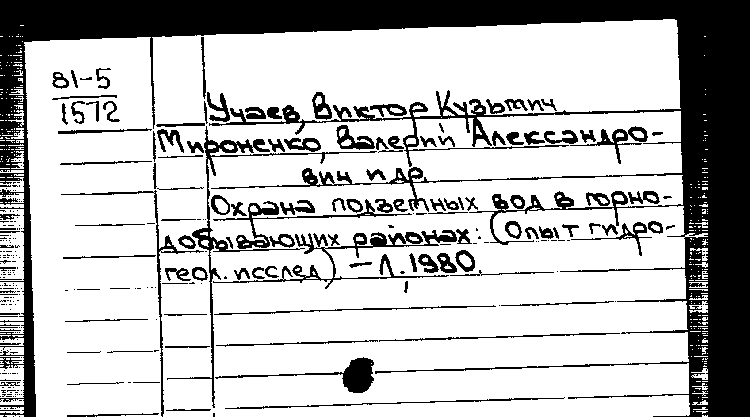 81-5
1572
Учаев, Виктор Кузьмич
Мироненко, Валерий Александро-
вич и др.
Охрана подземных вод в горно-
добывающих районах: (Опыт гидро-
геол. исслед) – Л., 1980.